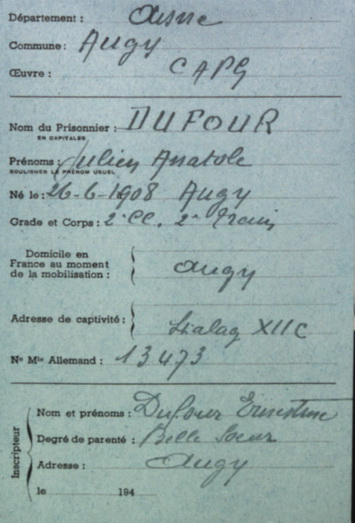 Département : Aisne
Commune : Augy
Œuvre : CAPG
Nom du Prisonnier : DUFOUR
EN CAPITALES
Prénoms : Julien Anatole
SOULIGNER LE PRÉNOM USUEL
Né le : 26-6-1908 Augy
Grade et Corps : 2e Cl. 2e Train
Domicile en
France au moment
de la mobilisation : Augy
Adresse de captivité : Stalag XIIC
No Mle Allemand : 13473
Inscripteur
Nom et prénoms : Dufour Ernestine
Degré de parenté : Belle Soeur
Adresse : Augy
le 194